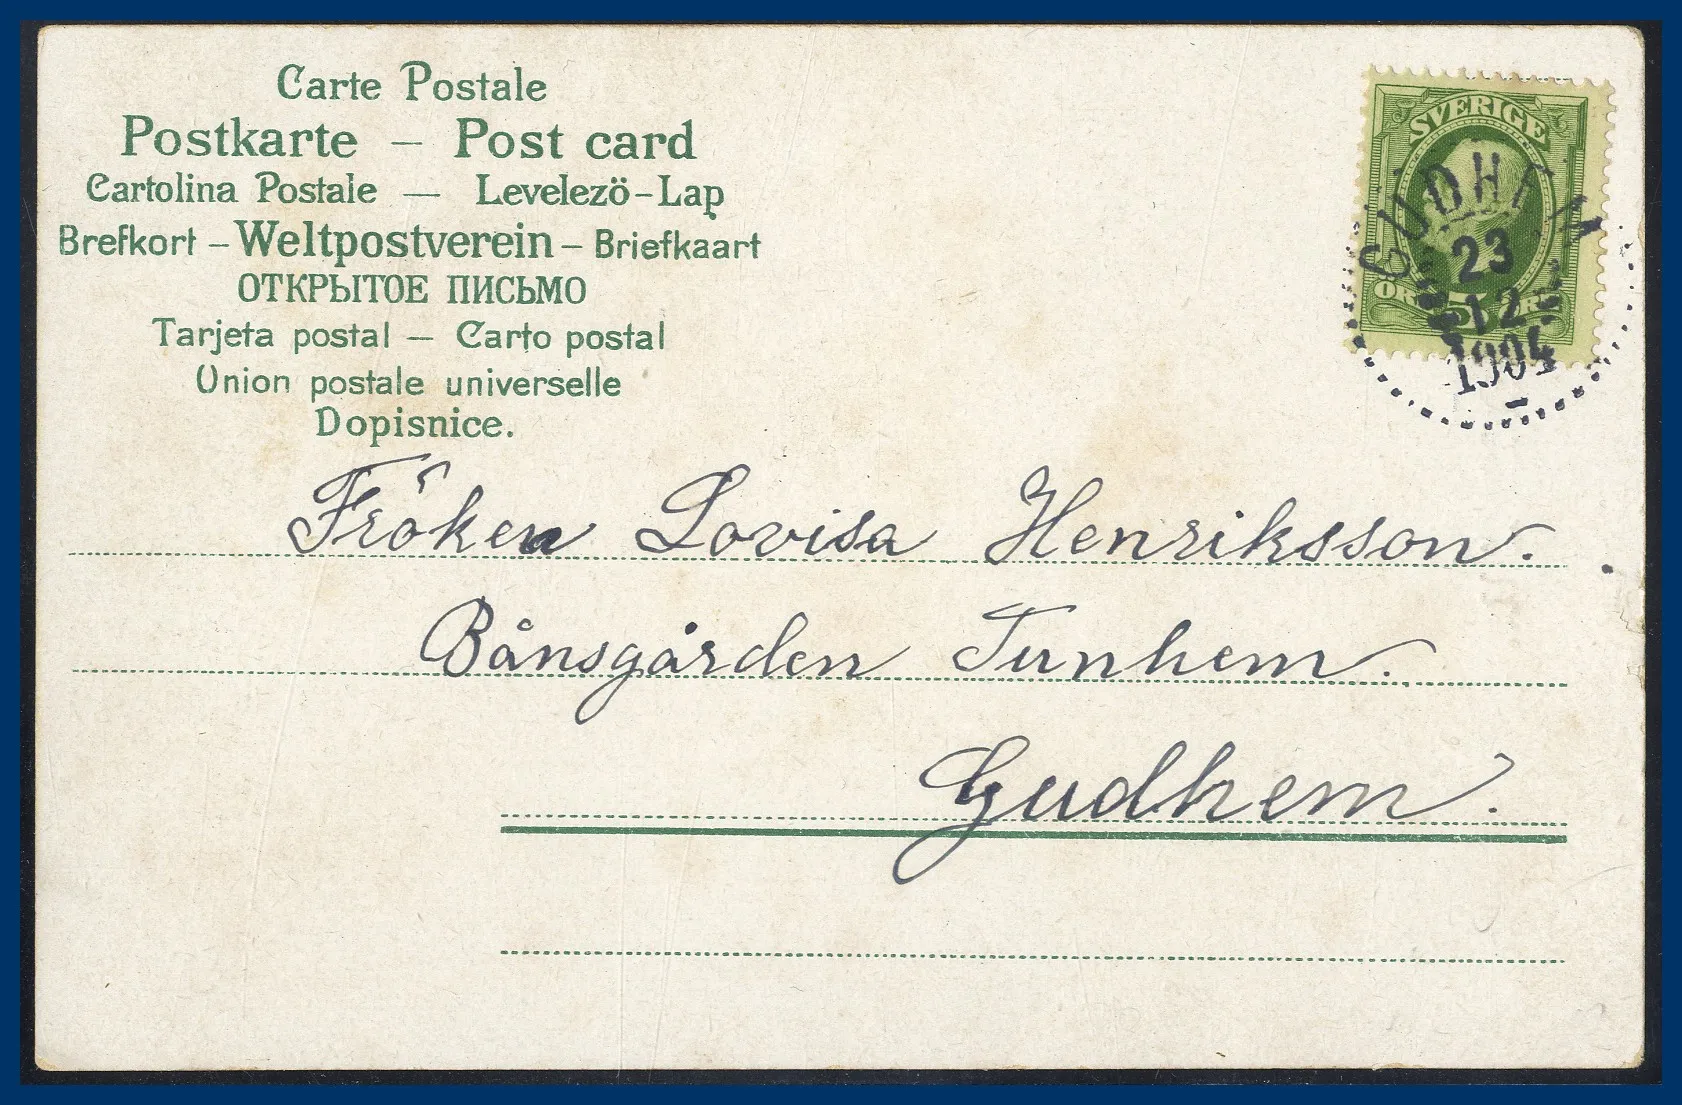 Carte Postale
Postkarte — Post card
Cartolina Postale — Levelezö-Lap
Brefkort - Weltpostverein - Briefkaart
ОТКРЫТОЕ ПИСЬМО
Tarjeta postal — Carto postal
Union postale universelle
Dopisnice.
SVERIGE
GUDHEM
23
12
1904
ÖRE 5 ÖRE
Fröken Lovisa Henriksson.
Bånsgården Tunhem.
Gudhem.